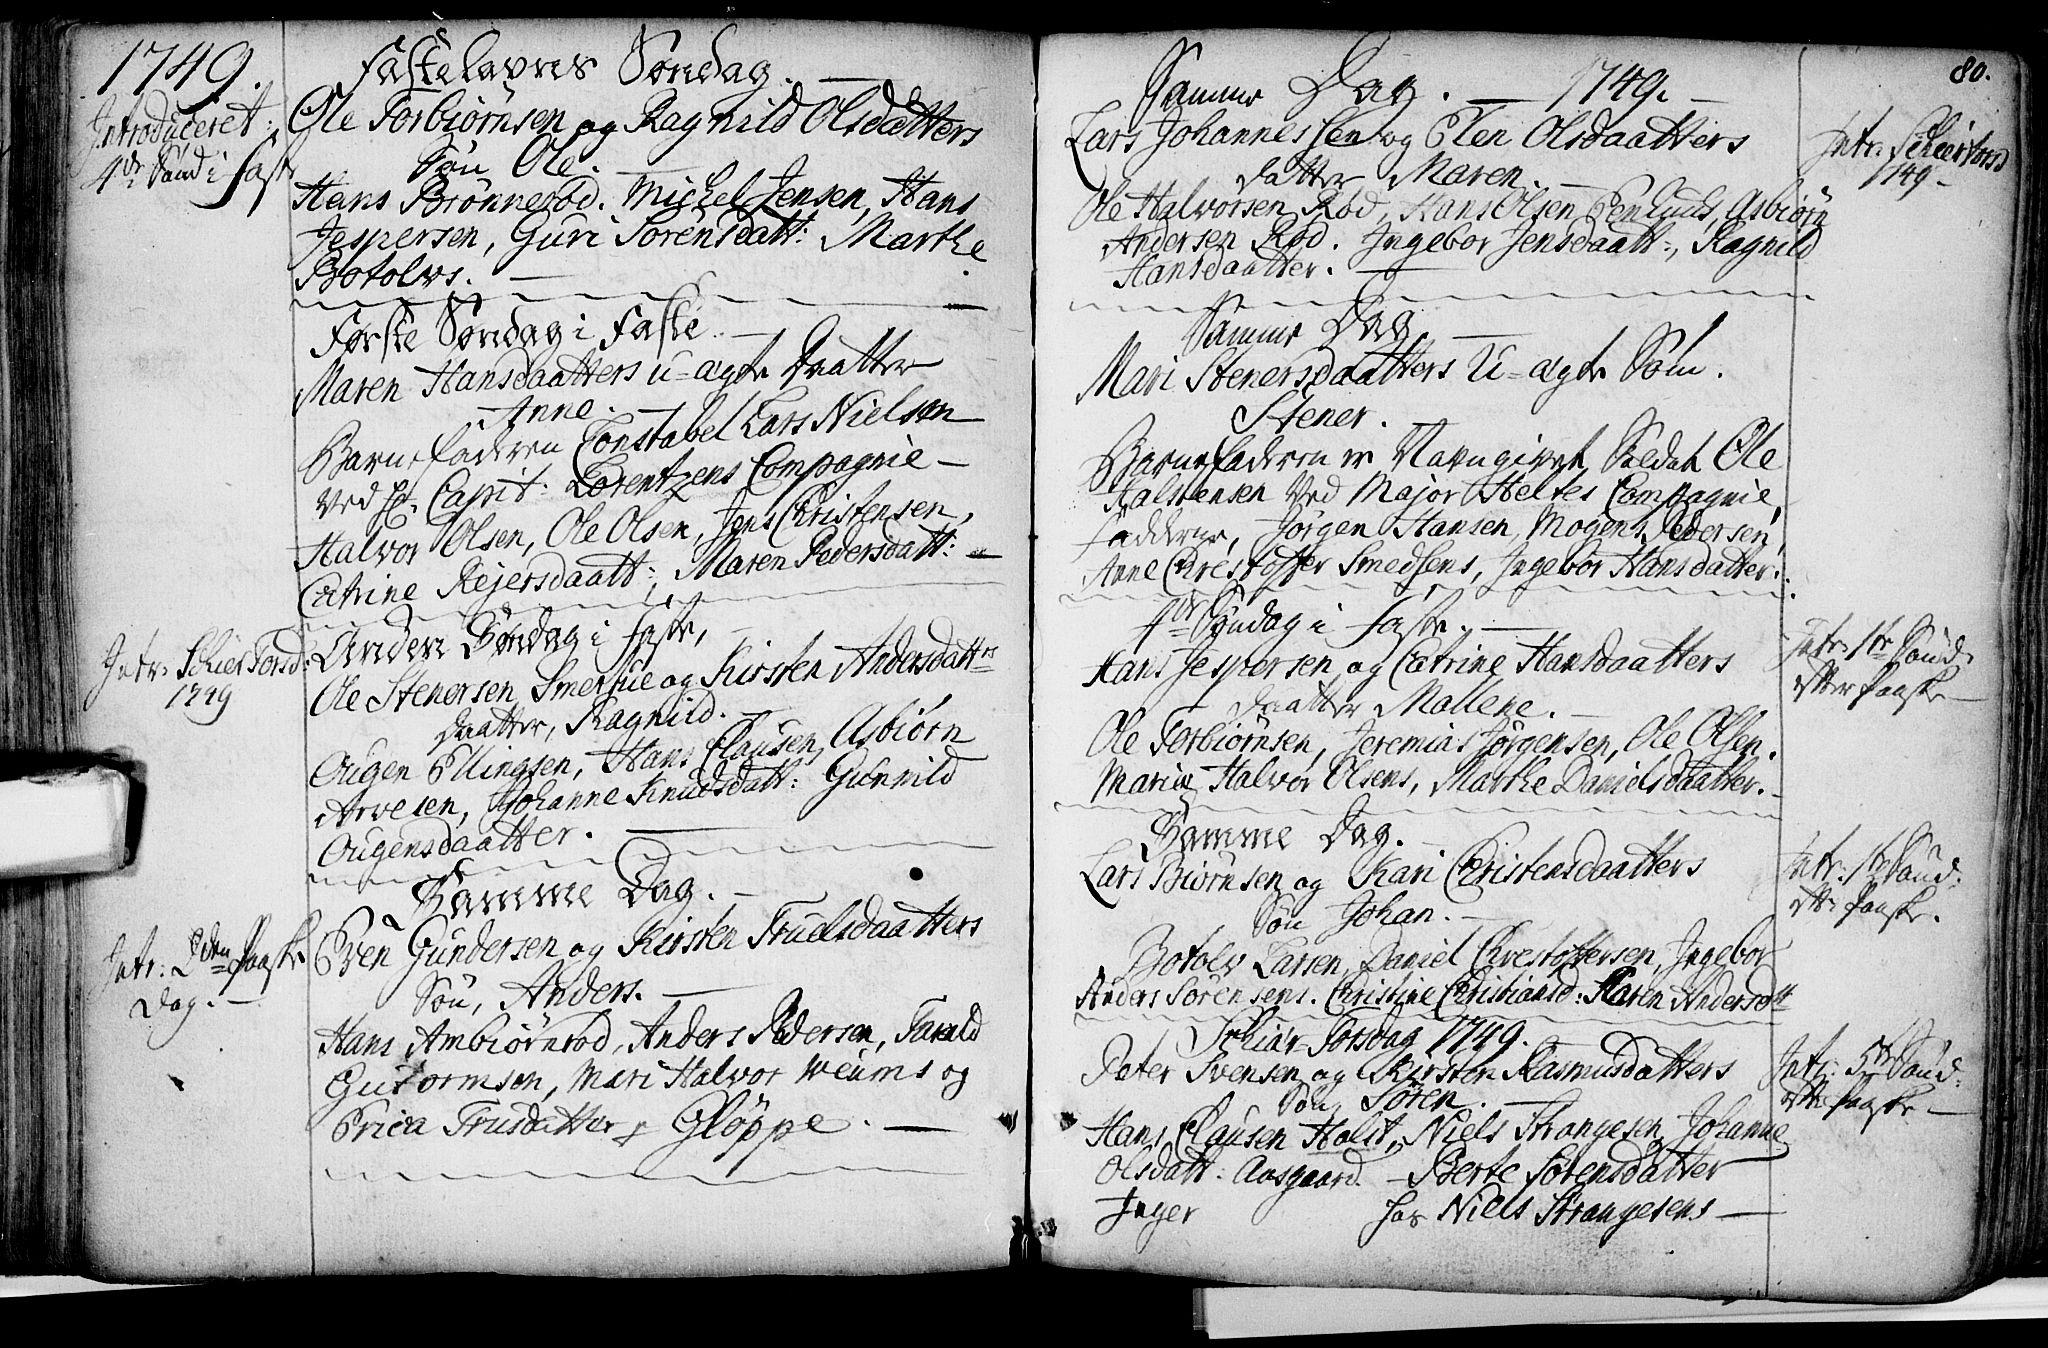 1749.
Introduceret:
4de Sønd i fast
Fastelavns Søndag.
Ole Torbiørnsen og Ragnild Olsdatters
Søn Ole.
Hans Brønnerød. Michel Jensen, Hans
Jespersen, Guri Sørensdatt: Marthe
Botolvs.
Første Søndag i Faste.
Maren Hansdaatters u-ægte Daatter
Anne.
Barnefaderen Constabel Lars Nielsen
ved Hr. Capit: Lorentzens Compagnie
Halvor Olsen, Ole Olsen, Jens Christensen,
Catrine Rejersdaatt:, Maren Pedersdatt:
Intr. Schier Torsd:
1749
Anden Søndag i faste,
Ole Stenersen Smertue og Kirsten Andersdattrs
Daatter, Ragnild.
Ougen Ellingsen, Hans Clausen, Asbiørn
Arvesen, Johanne Knudsdatt: Gunnild
Ougensdaatter.
Samme Dag.
Intr: 2den Paaske
Dag.
Even Gundersen og Kirsten Truelsdaatters
Søn, Anders.
Hans Ambiørnrød, Anders Pedersen, Tarald
Gutormsen, Mari Halvor Veums og
Erica Trusdatter Gløppe.
80.
Samme Dag. 1749.
Lars Johannessen og Elen Olsdaatters
Datter Maren.
Intr. Schiertorsd
1749
Ole Halvorsen Rød, Hans Olsen Penlund, Asbiørn
Andersen Rød. Ingebor Jensdaatt:, Ragnild
Hansdaatter.
Samme Dag
Mari Stenersdaatters U-ægte Søn.
Stener.
Barnefaderen er Navngivet Soldat Ole
Halstensen ved Major Heltes Compagnie,
Fadderne, Jørgen Hansen, Mogens Pedersen,
Anne Christoffer Smedsens, Ingebor Hansdatter.
4de Søndag i faste.
Intr. 1te Sønd.
efter Paaske
Hans Jespersen og Catrine Hansdaatters
Daatter Mallene.
Ole Torbiørnsen, Jeremias Jørgensen, Ole Olsen.
Marie Halvor Olsens, Marthe Danielsdaatter.
Samme Dag.
Intr: 1te Sønd:
efter Paaske.
Lars Biørnsen og Kari Christensdaatters
Søn Johan.
Botolv Larsen, Daniel Christoffersen, Ingebor
Anders Sørensens. Christine Christiansd: Karen Andersdtt
Schiær-Torsdag 1749.
Intr: 5te Sønd:
efter Paaske
Peter Svensen og Kirsten Rasmusdatters
Søn Søren.
Hans Clausen Holst, Niels Strangesen, Johanne
Olsdatt: Aasgaard. Berte Sørensdatter
Inger hos Niels Strangesens